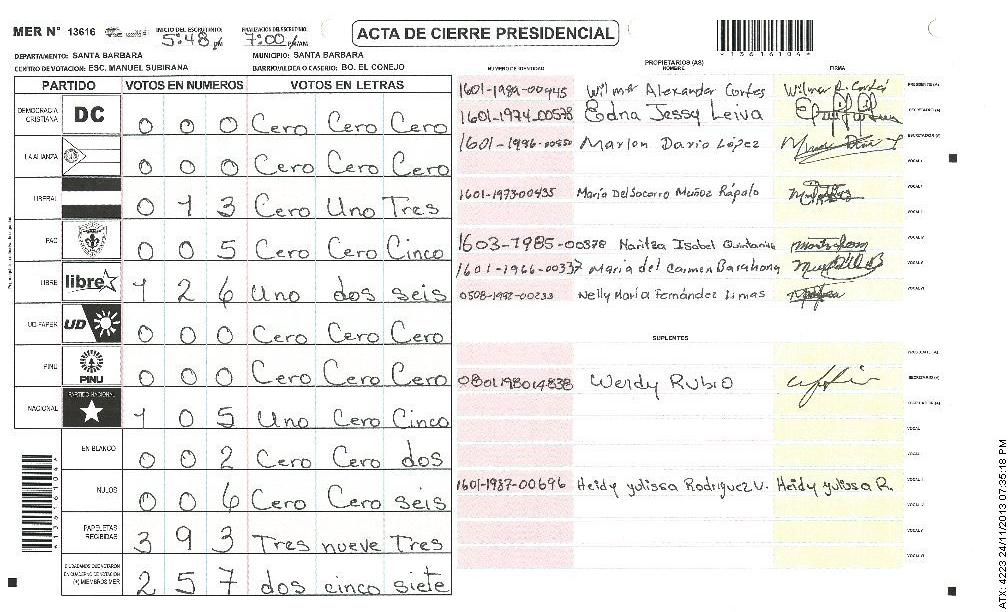 MER N° 13616 INICIO DEL ESCRUTINIO: 5:48 pm FINALIZACION DEL ESCRUTINIO: 7:00 p/m ACTA DE CIERRE PRESIDENCIAL
DEPARTAMENTO: SANTA BARBARA MUNICIPIO: SANTA BARBARA
CENTRO DE VOTACION: ESC. MANUEL SUBIRANA BARRIO/ALDEA O CASERIO: BO. EL CONEJO
PARTIDO VOTOS EN NUMEROS VOTOS EN LETRAS
DEMOCRACIA CRISTIANA DC 0 0 0 Cero Cero Cero
LA ALIANZA 0 0 0 Cero Cero Cero
LIBERAL 0 1 3 Cero Uno Tres
PAC 0 0 5 Cero Cero Cinco
LIBRE libre 1 2 6 Uno dos seis
UD-FAPER UD 0 0 0 Cero Cero Cero
PINU PINU 0 0 0 Cero Cero Cero
NACIONAL PARTIDO NACIONAL 1 0 5 Uno Cero Cinco
EN BLANCO 0 0 2 Cero Cero dos
NULOS 0 0 6 Cero Cero seis
PAPELETAS RECIBIDAS 3 9 3 Tres nueve Tres
CIUDADANOS QUE VOTARON EN CUADERNO DE VOTACION (+) MIEMBROS MER 2 5 7 dos cinco siete
PROPIETARIOS (AS)
NUMERO DE IDENTIDAD NOMBRE FIRMA
1601-1989-00445 Wilmer Alexander Cortes Wilmer A. Cortés PRESIDENTE (A)
1601-1974-00578 Edna Jessy Leiva SECRETARIO (A)
1601-1986-00850 Marlon Dario López ESCRUTADOR (A)
VOCAL I
1601-1973-00435 María Del Socorro Muñoz Rápalo
1603-1985-00878 Maritza Isabel Quintanilla
1601-1966-00337 Maria del Carmen Barahona
0508-1992-00233 Nelly María Fernández Limas
SUPLENTES
PRESIDENTE (A)
0801198014838 Wendy Rubio SECRETARIO (A)
ESCRUTADOR (A)
1601-1987-00696 Heidy yulissa Rodriguez V. Heidy yulissa R.
*13616104*
ATX: 4223 24/11/2013 07:35:18 PM